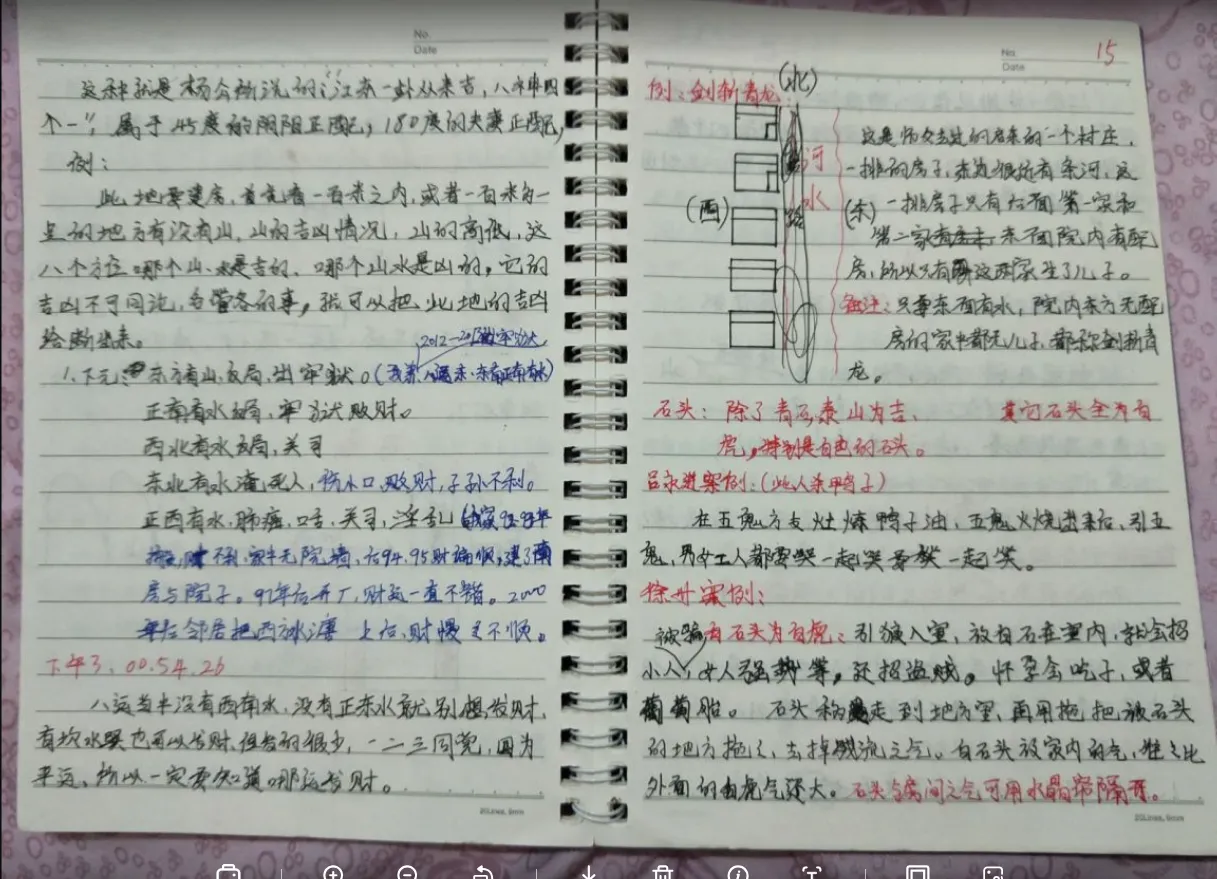 No.
Date
这种就是杨公所说的"江东一卦从来吉，八神四
个一"，属于45度的阴阳正配，180度的夫妻正配，
例：
此地要建房，首先看一百米之内，或者一百米多一
点的地方有没有山，山的吉凶情况，山的高低，这
八个方位哪个山、水是吉的、哪个山水是凶的，它的
吉凶不可同论，各管各的事，就可以把此地的吉凶
给断出来。
1、下元：东方有山
出牢狱。
正南有水
败财。
西北有水
官司
东北有水淹死人，伤小口，败财，子孙不利。
正西有水，肺痨，口舌，官司，淫乱
家中无院墙，
94、95财
房与院子。97年后开厂，财运一直不错。2000
年后邻居把西方水沟 上后，财慢 不顺。
下午3，00.54.26
八运当中没有西南水，没有正东水就别想发财，
有坎水哭也可以发财，但发的很少，一二三同宫，因为
平运，所以一定要知道哪运发财。
20Lines, 9mm
No.
Date
15
例：剑斩青龙
(北)
(西)
(东)
河
水
路
这是师父去过的
的一个村庄，
一排的房子，东边很近有条河，这
一排房子只有后面第一家和
第二家
东面院内有配
房，所以只有
这两家生了儿子。
批注：只要东面有水，院内东方无配
房的家中都无儿子，都称剑斩青
龙。
石头：除了青石，泰山为吉、 其它石头全为白
虎，特别是白色的石头。
案例：（此人杀鸭子）
在五鬼方支灶炼鸭子油，五鬼火烧出来后，引五
鬼，男女工人都要哭一起哭要笑一起笑。
徐州案例：
被骗
白石头为白虎：引狼入室，放白石在室内，就会招
小人，女人强势等，还招盗贼。怀孕会吃子，或者
葡萄胎。石头
走到地方空，再用拖把放石头
的地方拖拖，去掉残流之气。白石头放家内的气，往往比
外面的白虎气还大。石头与房间之气可用水晶帘隔开。
20Lines, 9mm